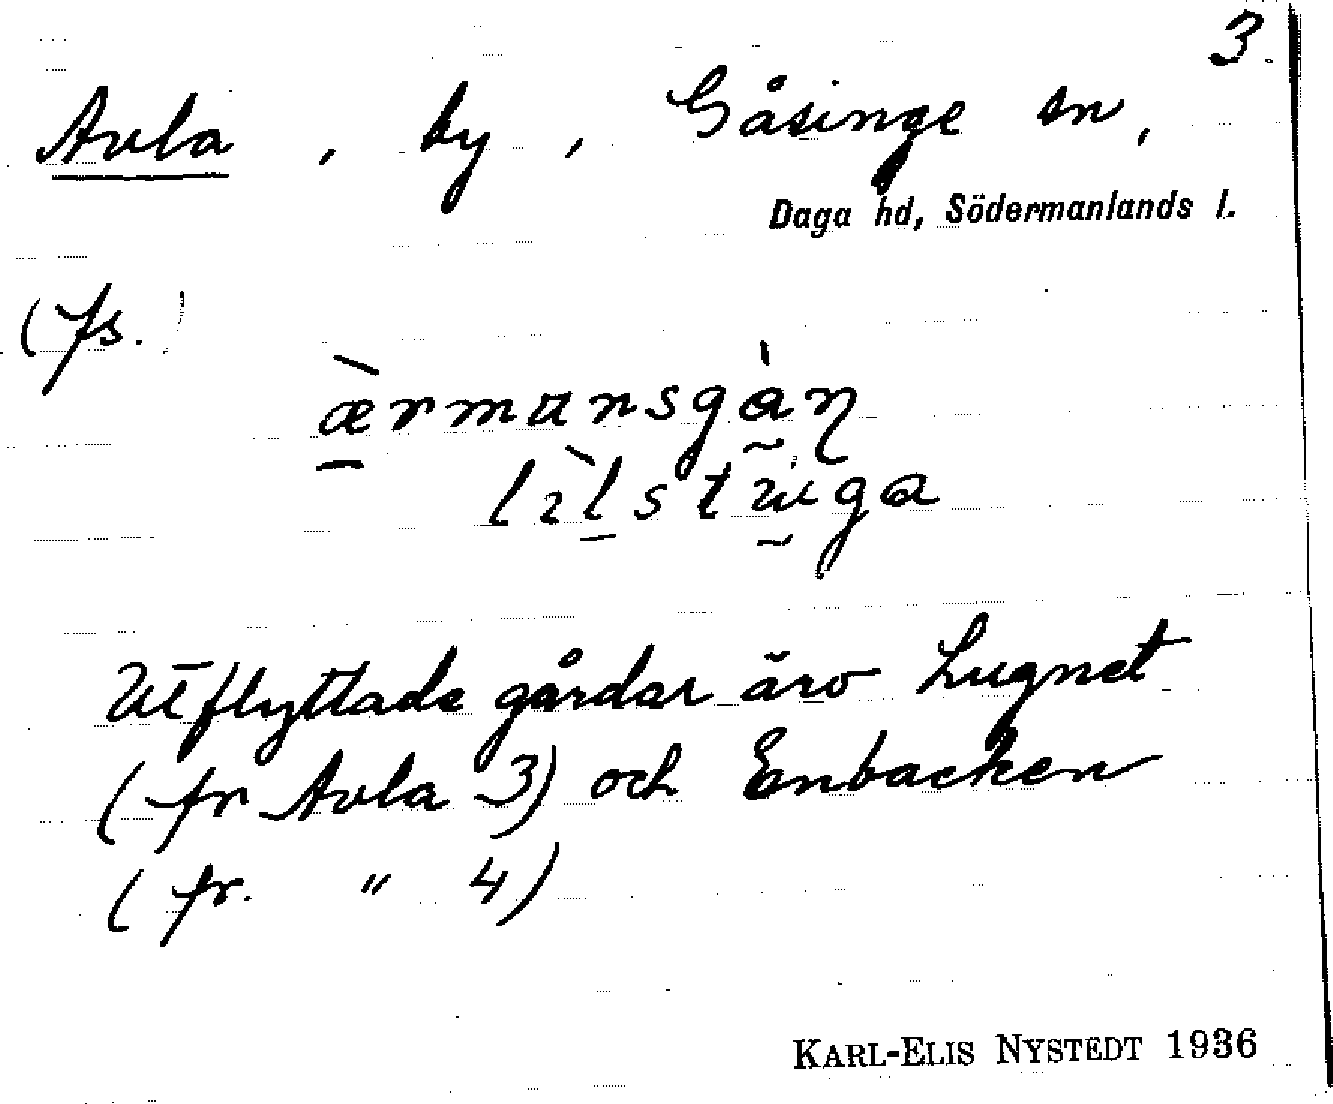 3.
Avla, by, Gåsinge sn,
Daga hd, Södermanlands l.
(fs.)
æ̀rmansgàn̥
lìlstùga
Utflyttade gårdar äro Lugnet
(fr Avla 3) och Enbacken
(fr. " 4)
KARL-ELIS NYSTEDT 1936